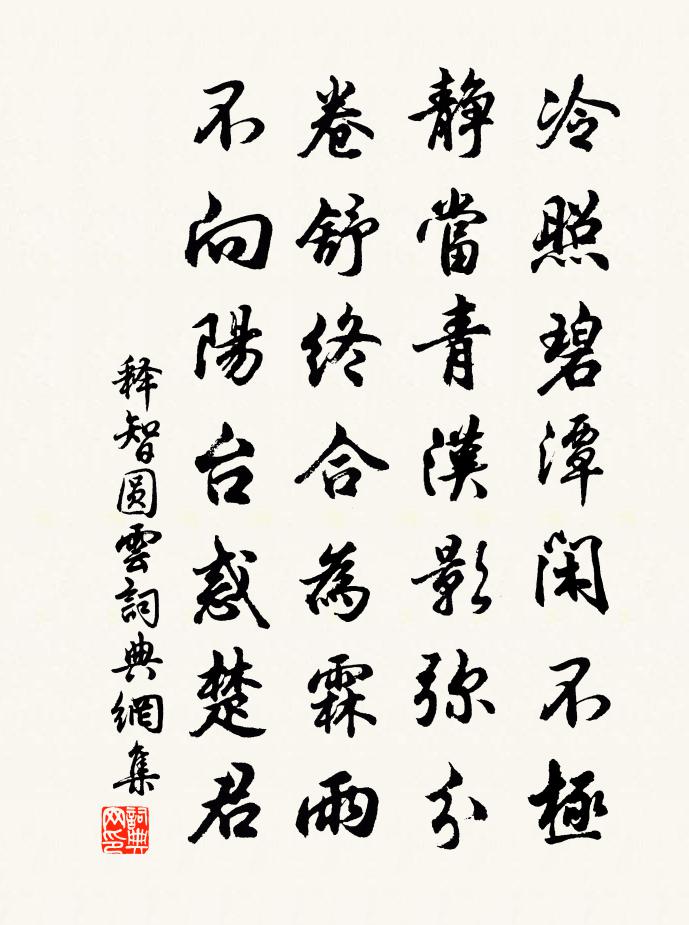 冷照碧潭閑不極
靜當青漢影弥分
卷舒終合為霖雨
不向陽台惑楚君
释智圓雲詞典網集
詞典网印